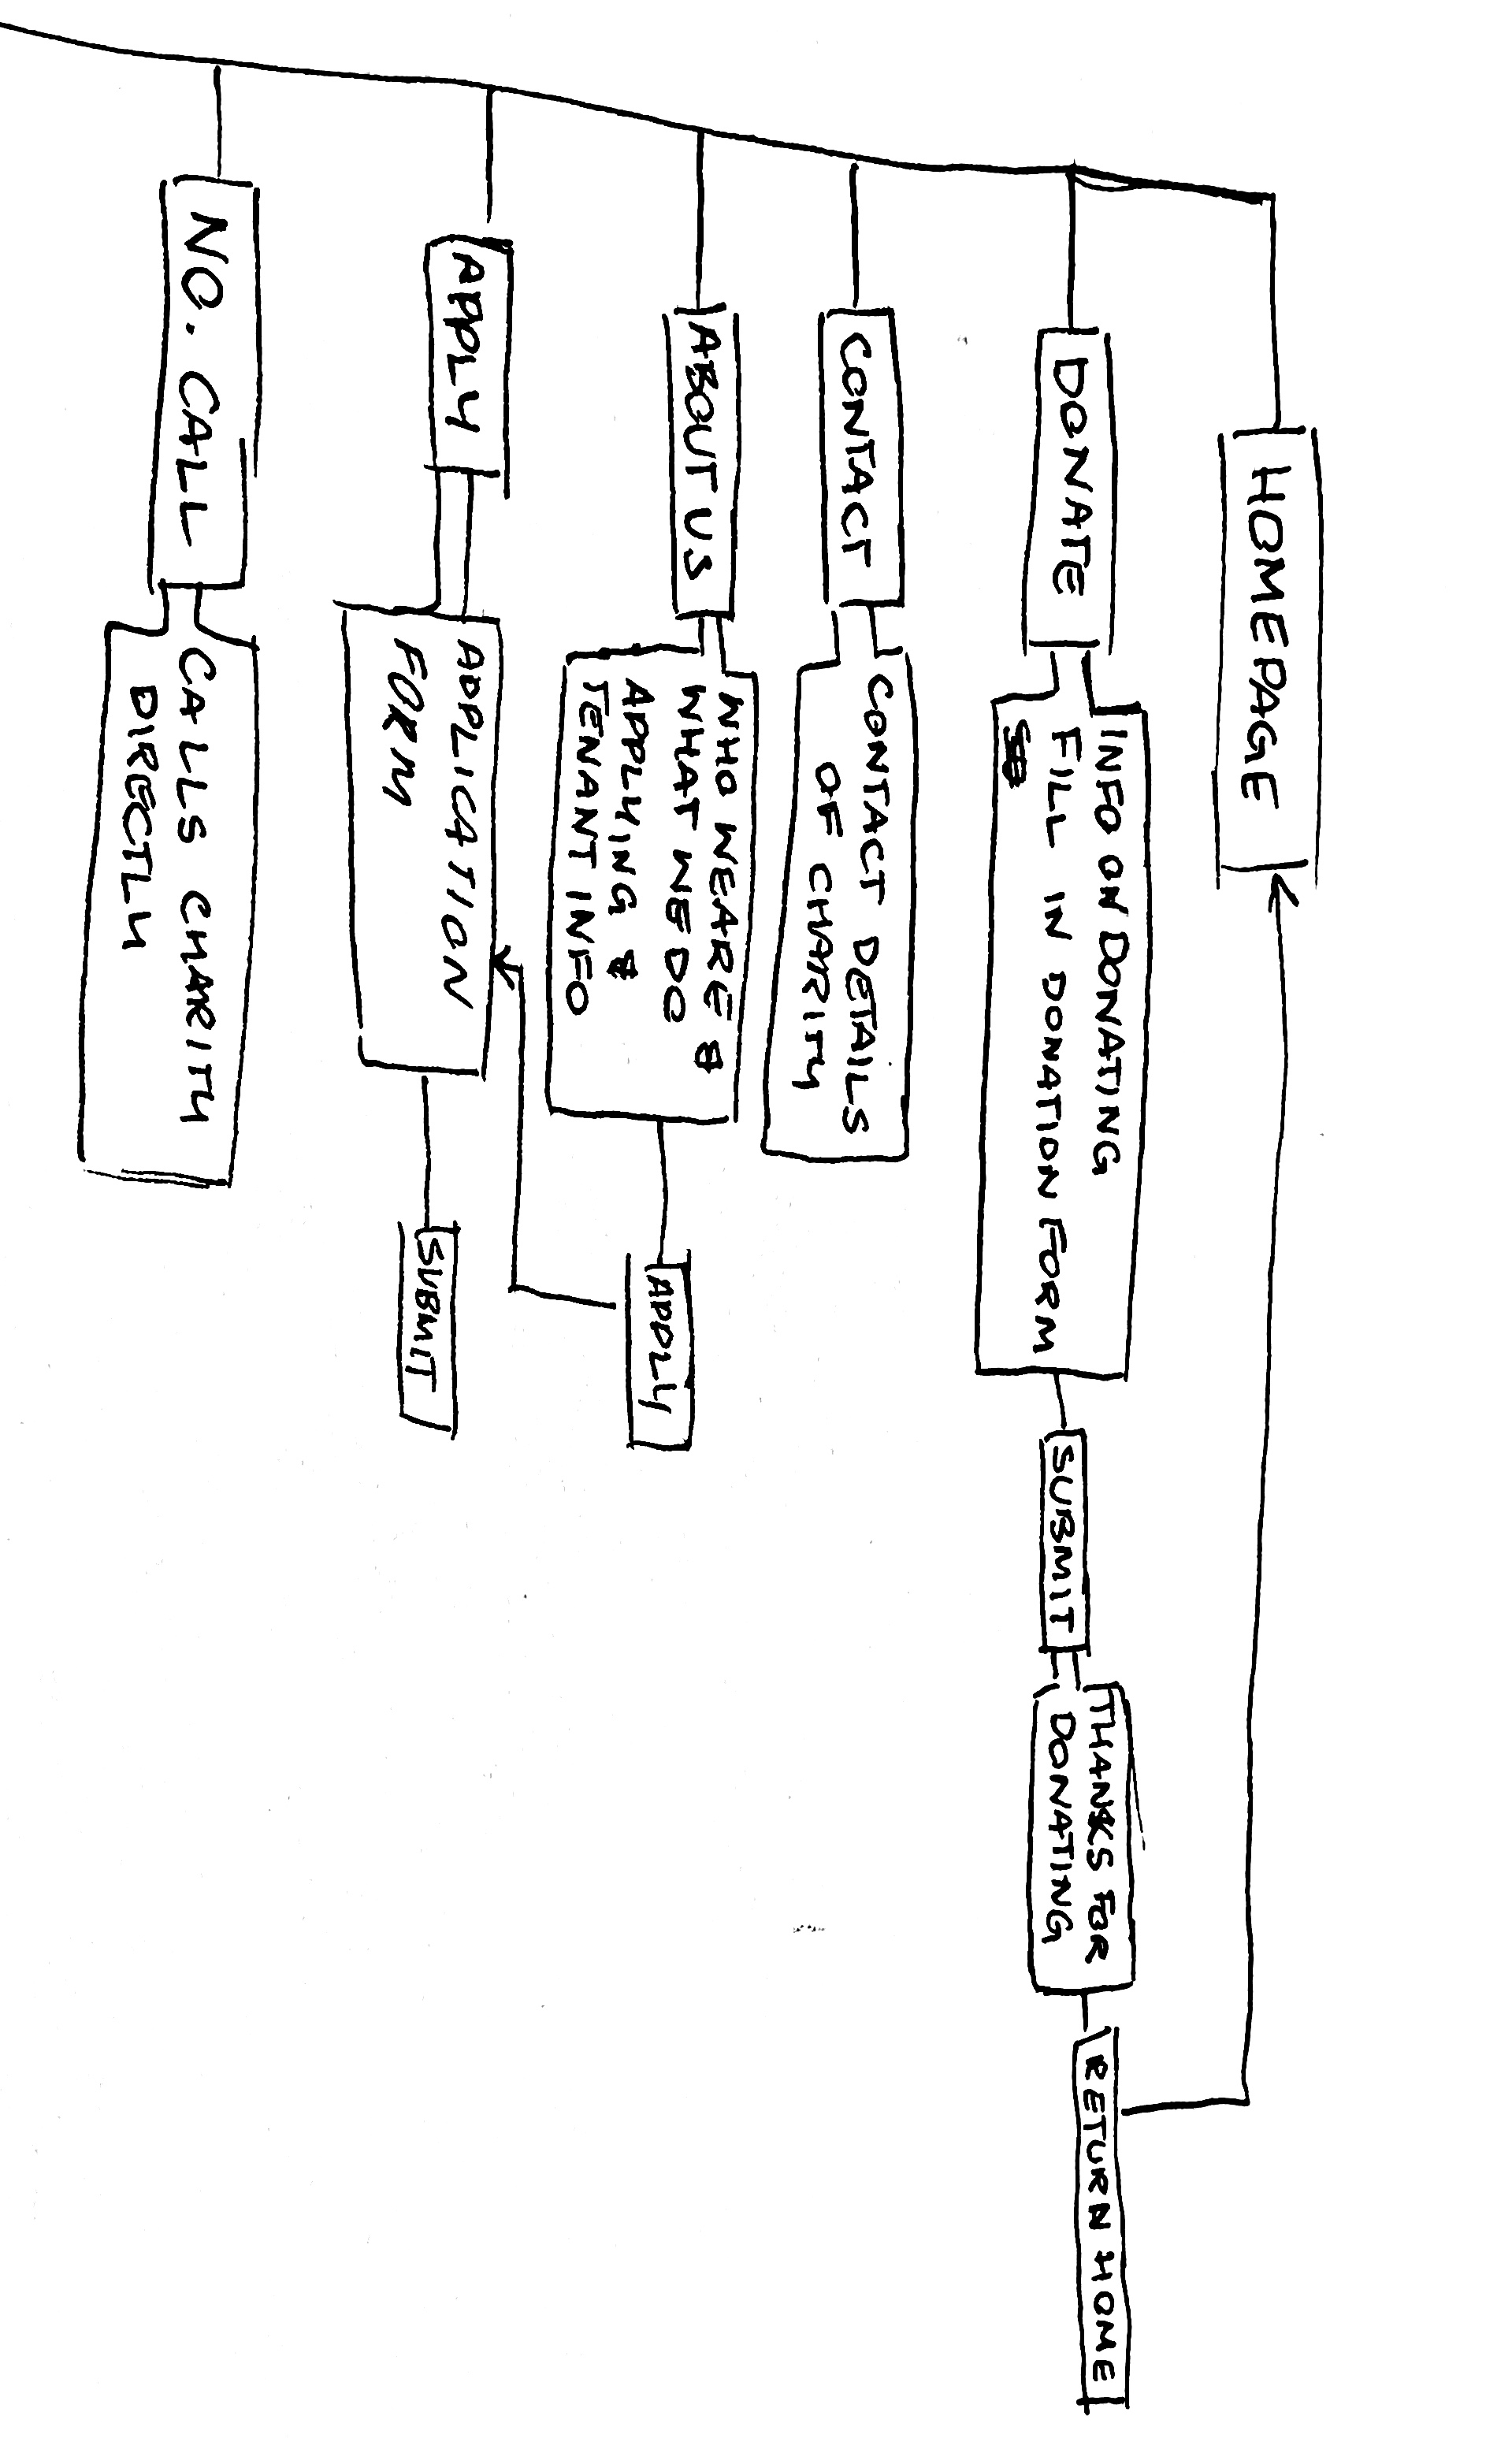 HOMEPAGE
DONATE
INFO ON DONATING
FILL IN DONATION FORM
SUBMIT
THANKS FOR
DONATING
RETURN HOME
CONTACT
CONTACT DETAILS
OF CHARITY
ABOUT US
WHO WE ARE &
WHAT WE DO
APPLYING &
TENANT INFO
APPLY
APPLY
APPLICATION
FORM
SUBMIT
NO. CALL
CALLS CHARITY
DIRECTLY